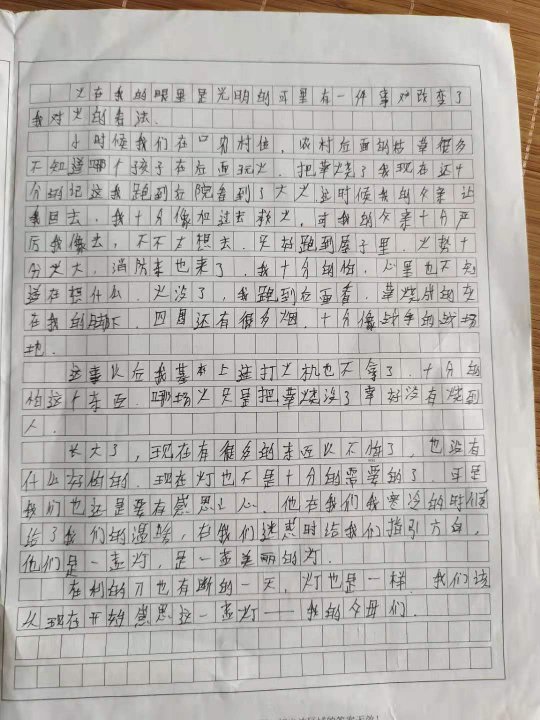 火在我的眼里是光明的可是有一件事对改变了
我对火的看法.
小时候我们在口农村住, 农村后面的枯草很多
不知道哪个孩子在后面玩火. 把草烧了我现在还十
分的记这我跑到后院看到了大火这时候我的父亲让
我回去. 我十分像加过去救火. 对我的父亲十分严
厉我像去, 不不大想去. 只好跑到屋子里. 火势十
分火大, 消防车也来了. 我十分的怕, 心里也不知
道在想什么. 火没了, 我跑到后面看. 草烧成的灰
在我的脚下. 四周还有很多烟. 十分像战争的战场
地.
这事以后我基本上连打火机也不拿了. 十分的
怕这个东西. 哪场火只是把草烧没了幸好没有烧到
人.
长大了, 现在有很多的东西以不怕了, 也没有
什么好怕的. 现在灯也不是十分的需要的了. 可是
我们也还是要有感恩之心. 他在我们我寒冷的时候
给了我们的温暖, 在我们迷惑时给我们指引方向,
他们是一盏灯, 是一盏美丽的灯.
在利的刀也有断的一天, 灯也是一样. 我们该
从现在开始感恩这一盏灯——我的父母们.